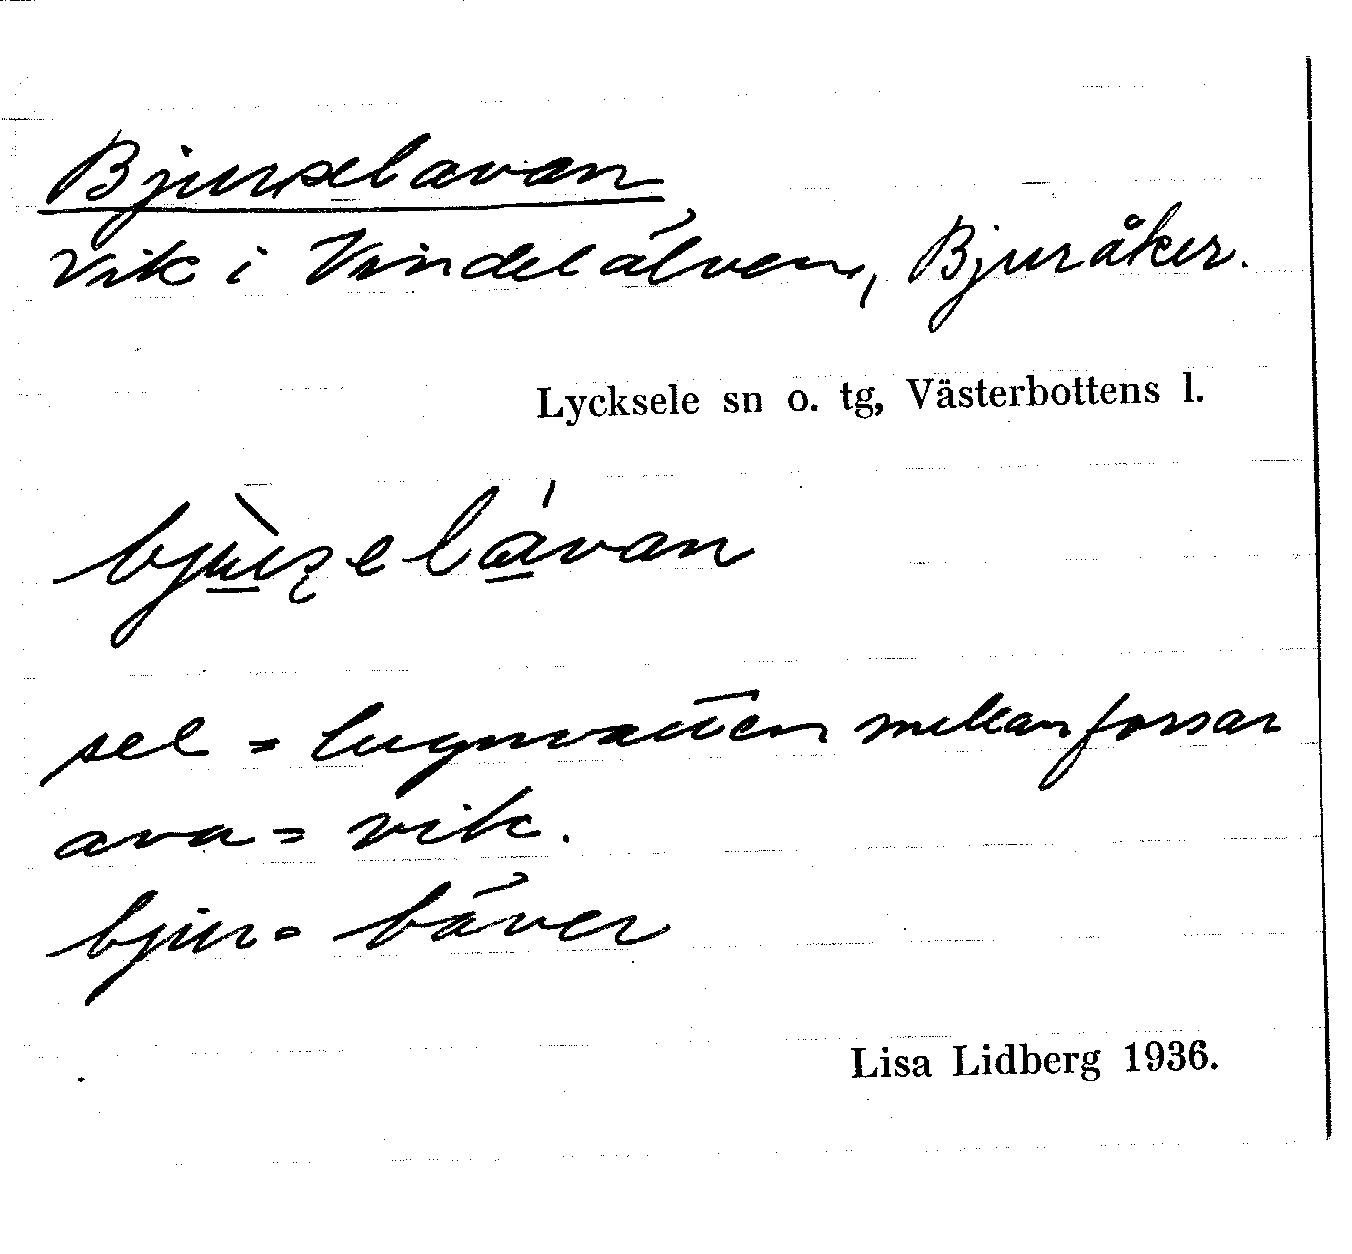 Bjurselavan
Vik i Vindelälven, Bjuråker.
Lycksele sn o. tg, Västerbottens l.
sel = lugnvatten mellan forsar
ava = vik.
bjur = bäver
Lisa Lidberg 1936.